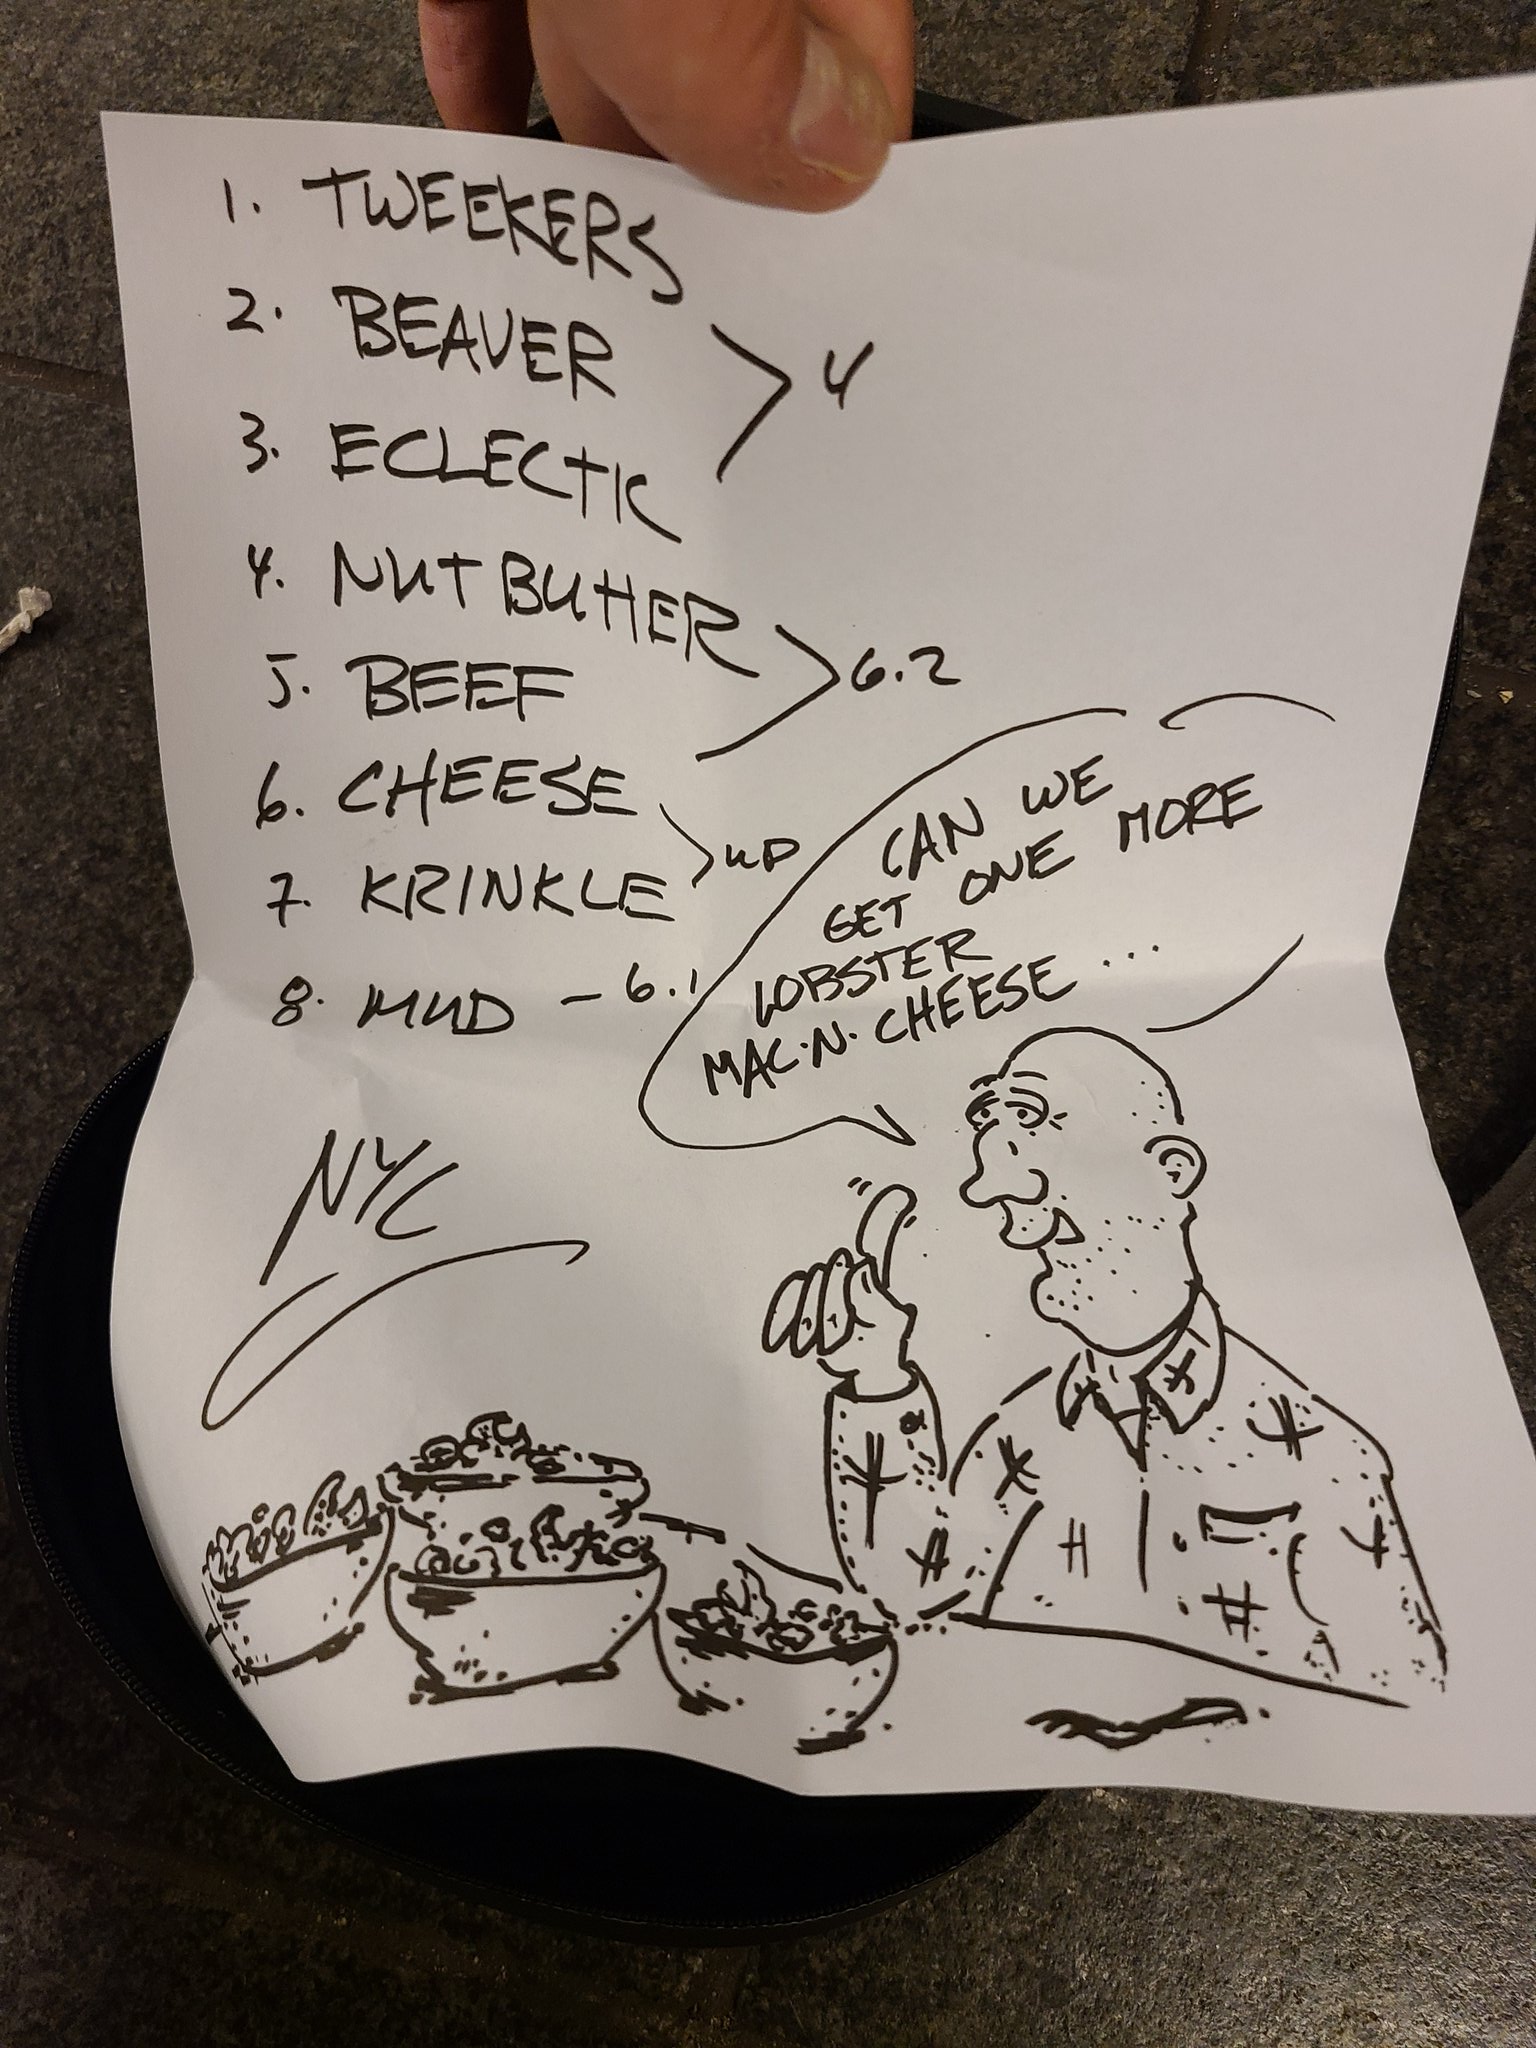 1. TWEEKERS
2. BEAVER
> 4
3. ECLECTIC
4. NUTBUTTER
5. BEEF
> 6.2
6. CHEESE
7. KRINKLE
8. MUD - 6.1
CAN WE
GET ONE MORE
LOBSTER
MAC·N·CHEESE...
NYC